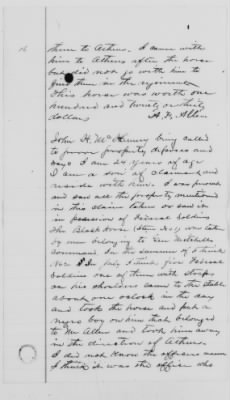 them to Athens. I came with
him to Athens after the horse
but did not go with him to
find them in the regiment
This horse was worth one
hundred and twenty or thirty
dollars
A. F. Allen
John H. McKinney being called
to prove property deposes and
says I am 24 years of age
I am a son of claimant and
reside with him. I was present
and saw all the property mentioned
in this claim taken or saw it
in possession of Federal Soldiers
The Black horse (Item No 1) was taken
by men belonging to Gen Mitchells
command In the summer of
five Federal
Soldiers one of them with straps
on his shoulders came to the stable
about one oclock in the day
and took the horse and put a
negro boy on him that belonged
to Mr Allen and took him away
in the direction of Athens.
I did not know the officers name
I think it was the officer who